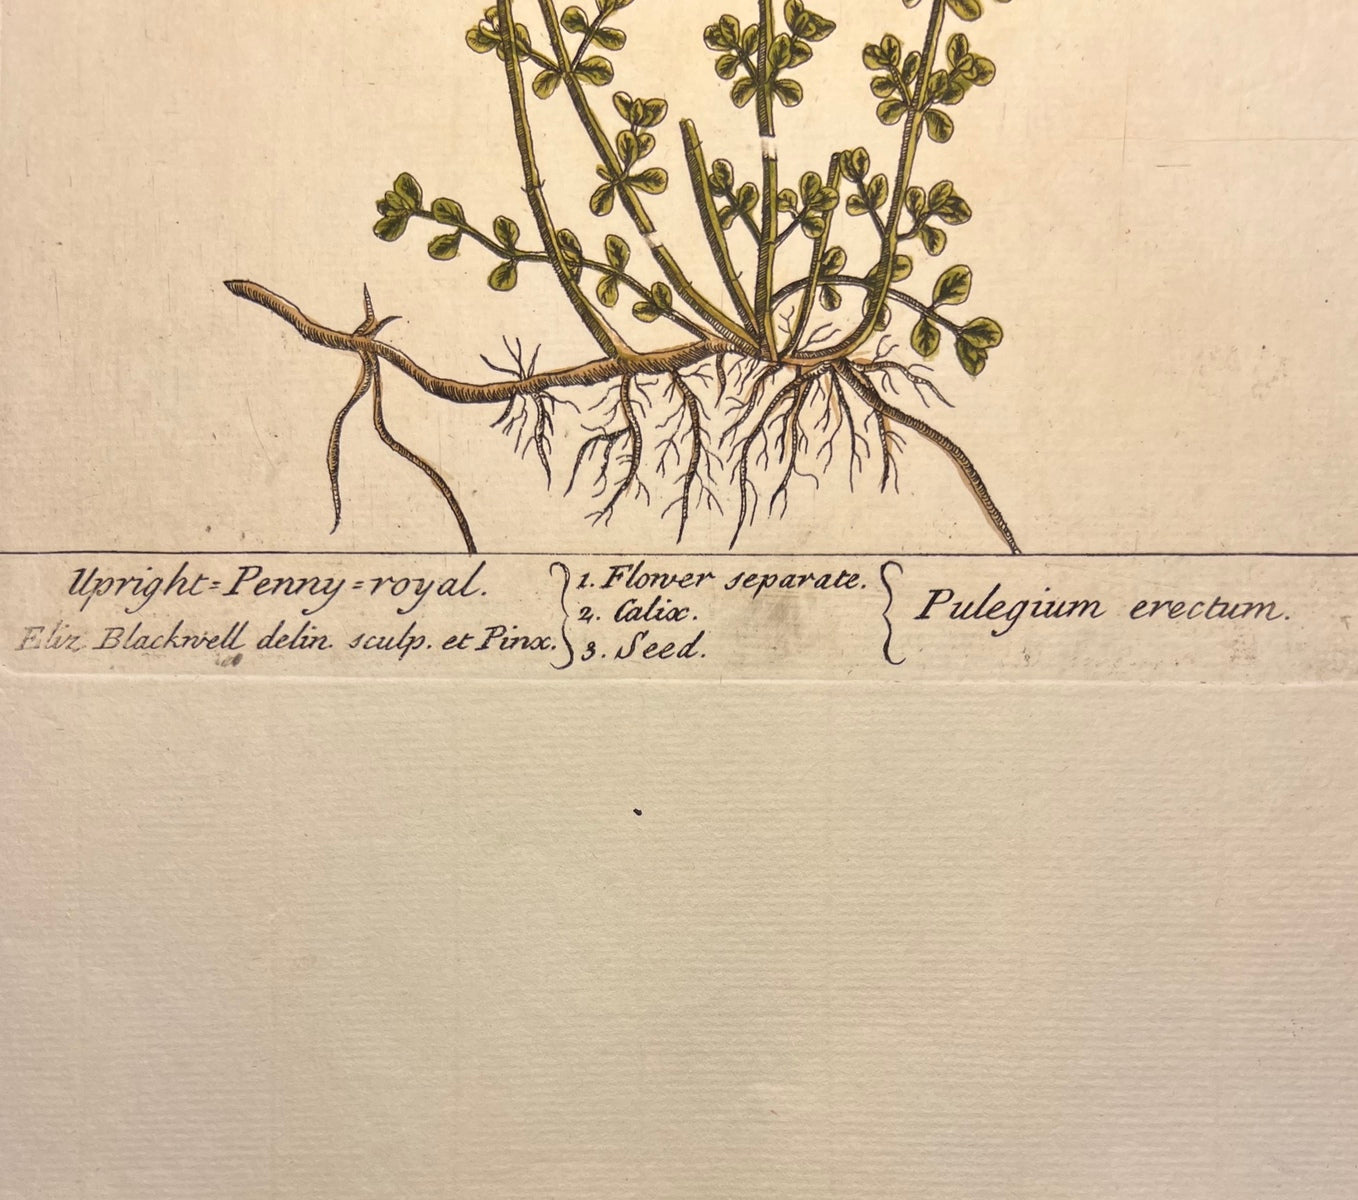 Upright=Penny=royal.
Eliz. Blackwell delin. sculp. et Pinx.
1. Flower separate.
2. Calix.
3. Seed.
Pulegium erectum.